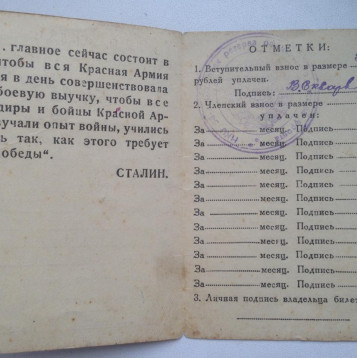 .. главное сейчас состоит в
чтобы вся Красная Армия
я в день совершенствовала
боевую выучку, чтобы все
диры и бойцы Красной Ар-
учали опыт войны, учились
ь так, как этого требует
обеды“.
СТАЛИН.
ОТМЕТКИ:
1. Вступительный взнос в размере
рублей уплачен.
Подпись:
2. Членский взнос в размере
уплачен:
За месяц. Подпись
За месяц. Подпись
За месяц. Подпись
За месяц. Подпись
За месяц. Подпись
За месяц. Подпись
За месяц. Подпись
За месяц. Подпись
За месяц. Подпись
За месяц. Подпись
За месяц. Подпись
За месяц. Подпись
3. Личная подпись владельца биле